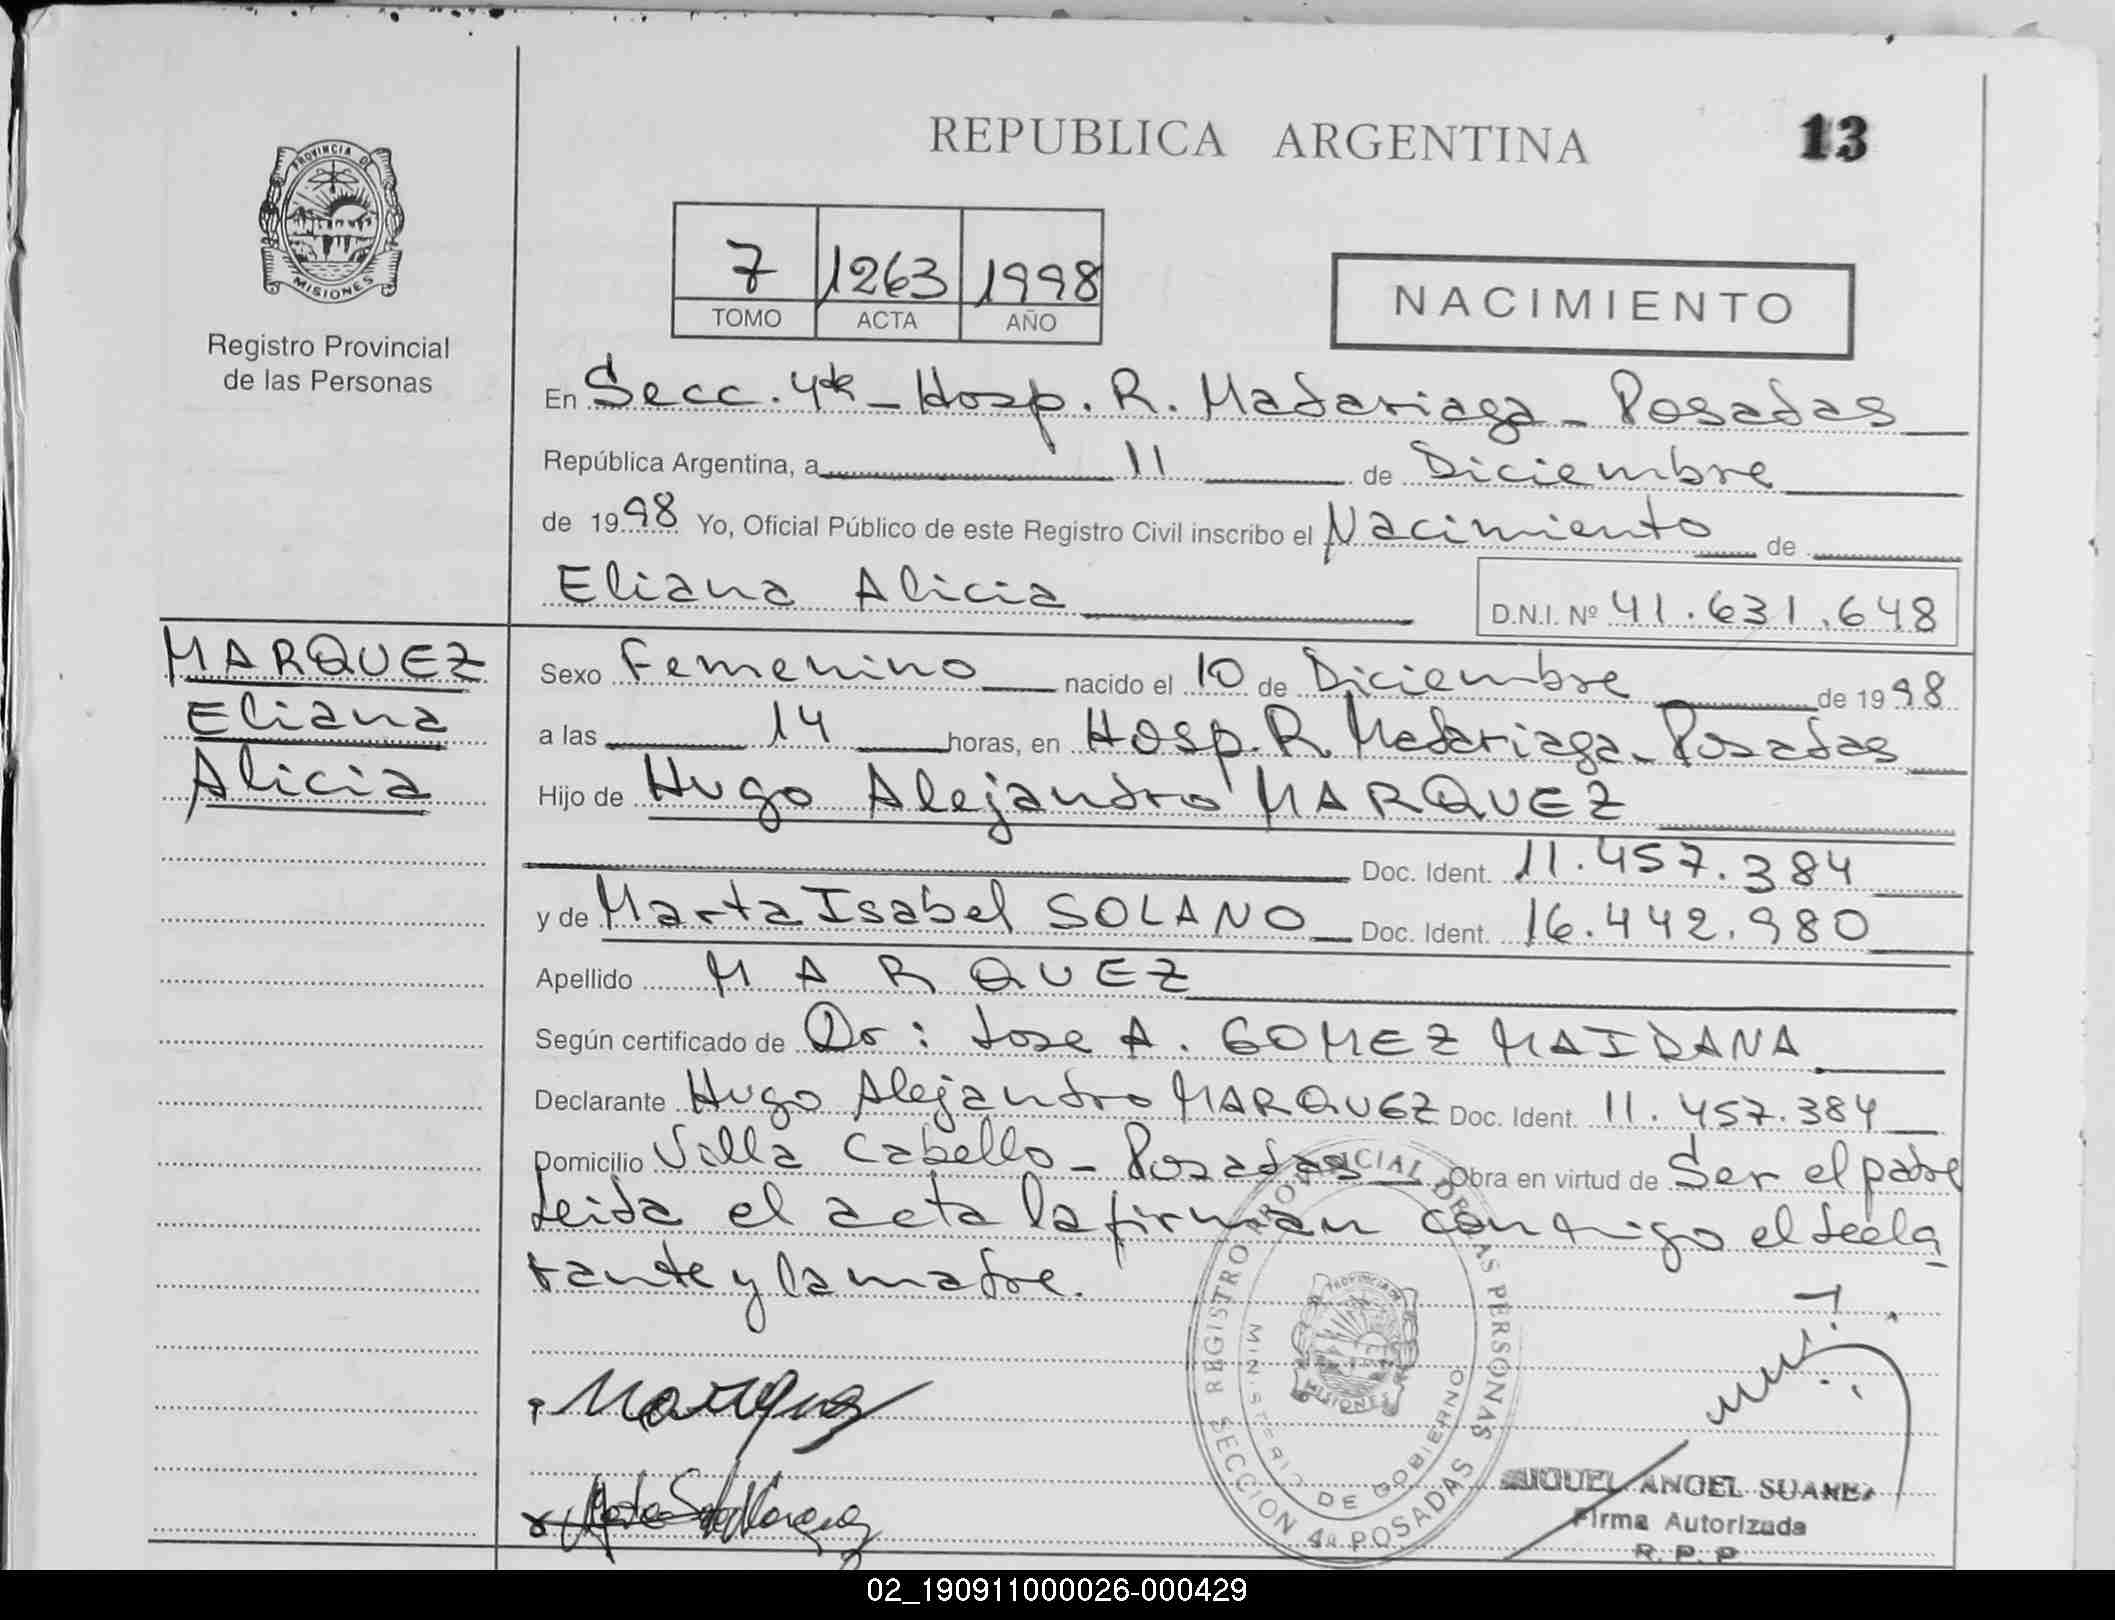 REPUBLICA ARGENTINA
13
PROVINCIA DE
MISIONES
Registro Provincial
de las Personas
7 1263 1998
TOMO ACTA AÑO
NACIMIENTO
En Secc. 4ta - Hosp. R. Madariaga - Posadas
República Argentina, a 11 de Diciembre
de 1998 Yo, Oficial Público de este Registro Civil inscribo el Nacimiento de
Eliana Alicia
D.N.I. Nº 41.631.648
MARQUEZ
Eliana
Alicia
Sexo Femenino nacido el 10 de Diciembre de 1998
a las 14 horas, en Hosp. R. Madariaga - Posadas
Hijo de Hugo Alejandro MARQUEZ
Doc. Ident. 11.457.384
y de Marta Isabel SOLANO Doc. Ident. 16.442.980
Apellido MARQUEZ
Según certificado de Dr: Jose A. GOMEZ MAIDANA
Declarante Hugo Alejandro MARQUEZ Doc. Ident. 11.457.384
Domicilio Villa Cabello - Posadas Obra en virtud de Ser el padre
Leida el acta la firman conmigo el decla
rante y la madre.
REGISTRO PROVINCIAL DE LAS PERSONAS
MINISTERIO DE GOBIERNO
PROVINCIA DE
MISIONES
SECCION 4a POSADAS
Marquez
MIGUEL ANGEL SUAREZ
Firma Autorizada
R. P. P
02_190911000026-000429